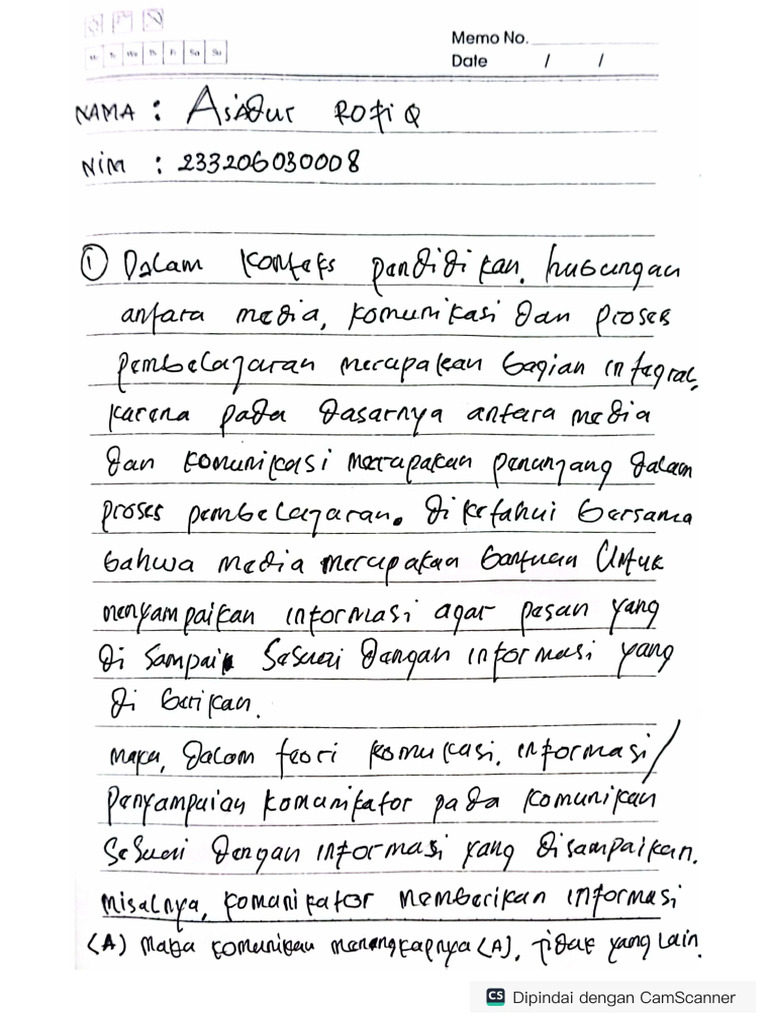 Memo No.
Date / /
Mo Tu We Th Fr Sa Su
NAMA : Asidur Rofiq
NIM : 233206030008
① Dalam konteks pendidikan. hubungan
antara media, komunikasi dan proses
pembelajaran merupakan bagian integral,
karena pada dasarnya antara media
dan komunikasi merupakan penunjang dalam
proses pembelajaran. diketahui bersama
bahwa media merupakan bantuan Untuk
menyampaikan informasi agar pesan yang
di sampaik sesuai dengan informasi yang
di berikan.
maka, dalam teori komukasi, informasi/
Penyampaian komunikator pada komunikan
Sesuai dengan informasi yang disampaikan.
misalnya, komunikator memberikan informasi
(A) maka komunikan menangkapnya (A), tidak yang lain.
CS Dipindai dengan CamScanner